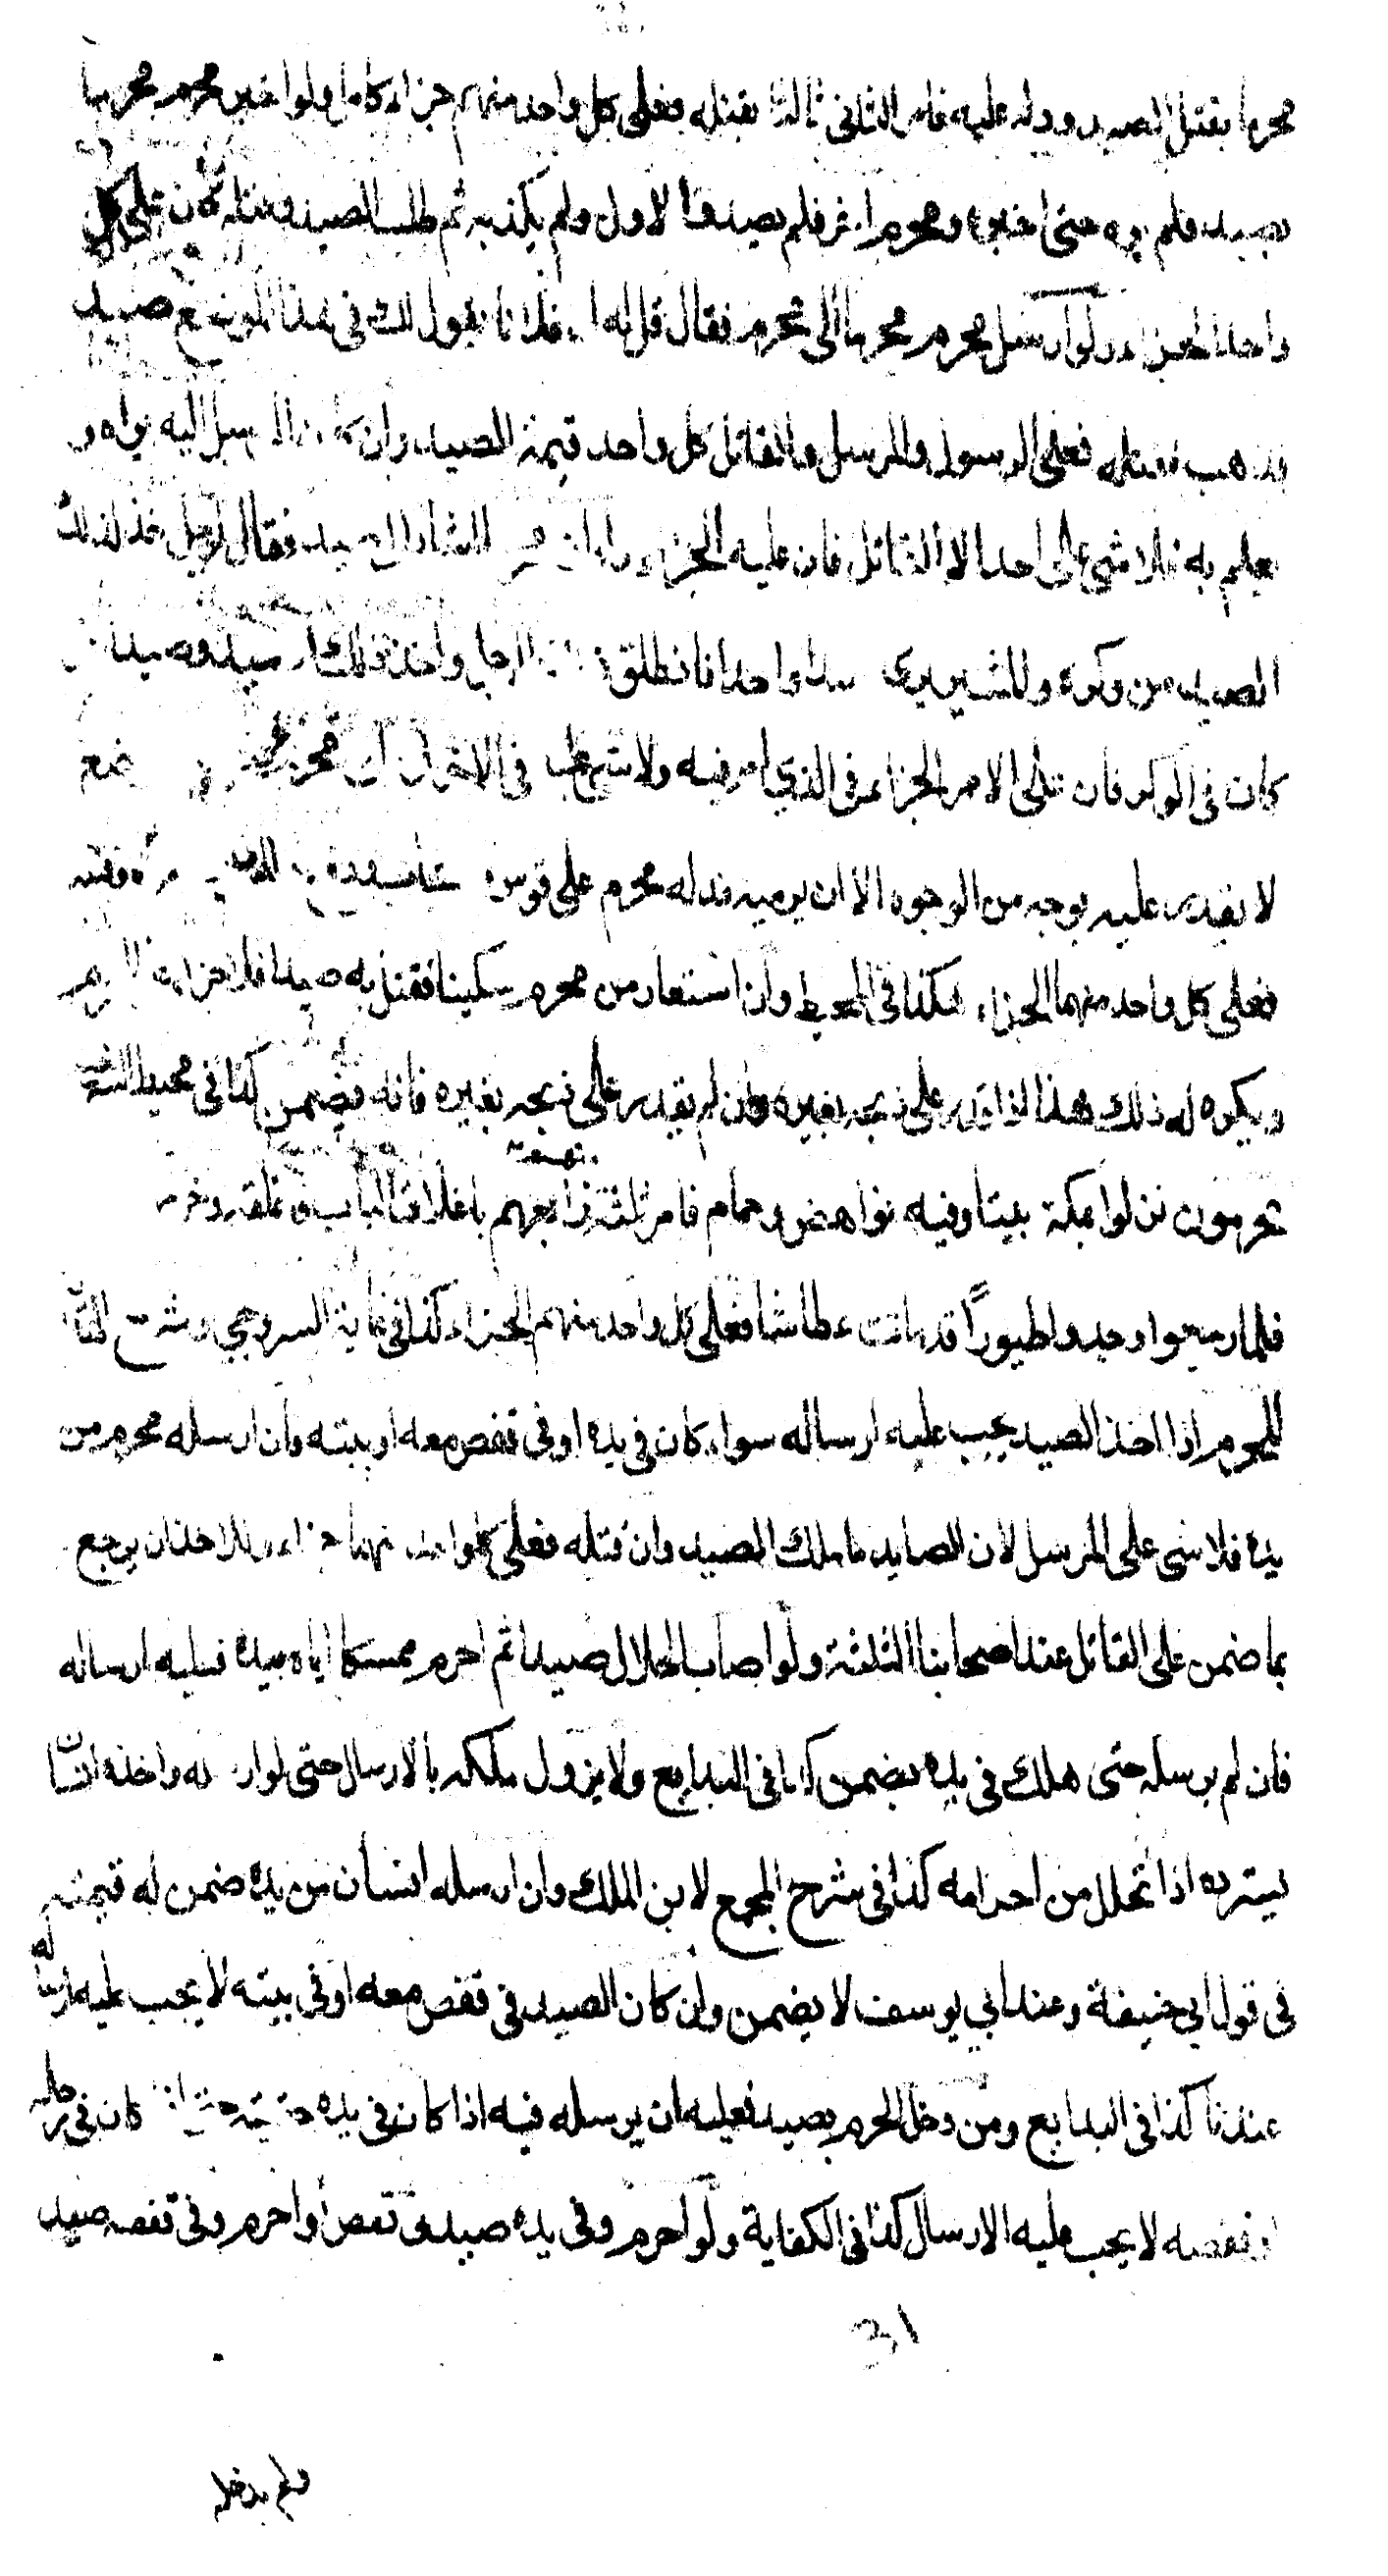 محرما بقتل الصيد ودله عليه فامر الثانى ثالثا بقتله فعلى كل واحد منهم جزاء كامل ولو اخبر محرم محرما
بصيد فلم يره حتى اخبره محرم اخر فلم يصدق الاول ولم يكذبه ثم طلب الصيد وقتله كان على كل
واحد الجزاء ولو ارسل محرم محرما الى محرم فقال قل له ان فلانا يقول لك فى هذا الموضع صيد
فذهب فقتله فعلى الرسول والمرسل والقاتل كل واحد قيمة الصيد وان كان المرسل اليه يراه و
يعلم به فلا شئ على احد الا القاتل فان عليه الجزاء الصيد فقال لرجل خذ ذلك
الصيد من وكره والمشير يرى صيدا واحدا فانطلق الرجل واخذ ذلك الصيد وصيدا
كان فى الوكر فان على الامر الجزاء فى الذي امر فيه ولا شئ عليه فى الاخر محرم فى موضع
لا يقدر عليه بوجه من الوجوه الا ان يرميه فدله محرم على قوس فقتله
فعلى كل واحد منهما الجزاء هكذا فى المحيط وان استعار من محرم سكينا فقتل به صيدا فلا جزاء
ويكره له ذلك هذا اذا قدر على ذبحه بغيره وان لم يقدر على ذبحه بغيره فانه يضمن كذا فى محيط السرخسى
محرمون نزلوا بمكة بيتا وفيه نواهض وحمام فامر ثلثة رابعهم باغلاق الباب فغلقه
فلما رجعوا وجدوا طيورًا قد ماتت عطاشا فعلى كل واحد منهم الجزاء كذا فى غاية السروجي وشرح
المحرم اذا اخذ الصيد يجب عليه ارساله سواء كان فى يده او فى قفص معه او بيته وان ارسله محرم من
يده فلا شئ على المرسل لان الصايد ما ملك الصيد وان قتله فعلى كل واحد منهما جزاء وللاخذ ان يرجع
بما ضمن على القاتل عند اصحابنا الثلثة ولو اصاب الحلال صيدا ثم احرم ممسكا اياه بيده فعليه ارساله
فان لم يرسله حتى هلك فى يده يضمن كذا فى البدايع ولا يزول ملكه بالارسال حتى لو ارسله واخذه انسان
يسترده اذا تحلل من احرامه كذا فى شرح المجمع لابن الملك وان ارسله انسان من يده ضمن له قيمته
فى قول ابي حنيفة وعند ابي يوسف لا يضمن وان كان الصيد فى قفص معه او فى بيته لا يجب عليه ارساله
عندنا كذا فى البدايع ومن دخل الحرم بصيد فعليه ان يرسله فيه اذا كان فى يده حقيقة حتى اذا كان فى رحله
او قفصه لا يجب عليه الارسال كذا فى الكفاية ولو احرم وفى يده صيد فى قفص او احرم وفى قفصه صيد
31
ولم يدخله